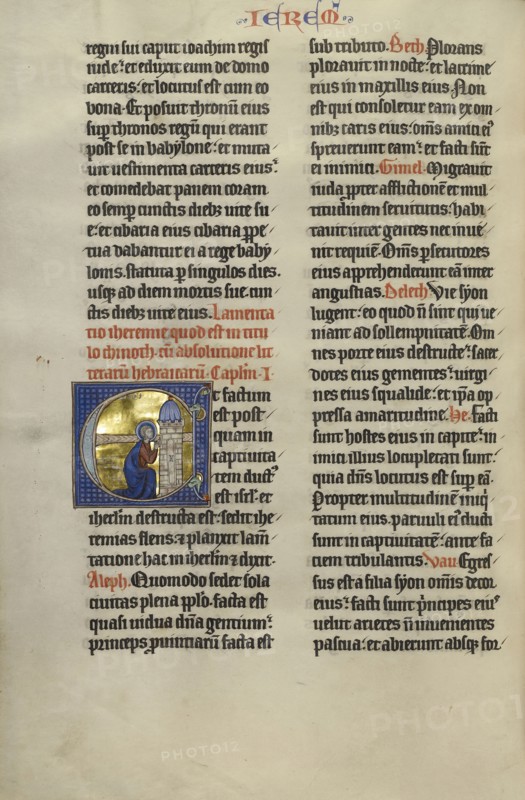 IEREM
regni sui caput ioachim regis
iude: et eduxit eum de domo
carceris: et locutus est cum eo
bona. Et posuit thronū eius
sup thronos regū qui erant
post se in babylone: et muta
uit uestimenta carceris eius:
et comedebat panem coram
eo semp cunctis diebȝ uite su
e: et cibaria eius cibaria ppe
tua dabantur ei a rege baby
lonis. statuta p singulos dies.
usqȝ ad diem mortis sue. cun
ctis diebȝ uite eius. Lamenta
tio iheremie quod est in titu
lo chinoth. cū absolutione lit
terarū hebraicarū. Caplm. I.
Et factum
est post
quam in
captiuita
tem duct⁹
est isrl. et
iherlm destructa est. sedit ihe
remias flens. ⁊ planxit lam̄
tatione hac in iherlm ⁊ dixit.
Aleph. Quomodo sedet sola
ciuitas plena pplo. facta est
quasi uidua dn̄a gentium:
princeps puintiarū facta est
sub tributo. Beth. Plorans
plorauit in nocte: et lacrime
eius in maxillis eius. Non
est qui consoletur eam ex om
nibȝ caris eius: om̄s amici ei⁹
spreuerunt eam: et facti sūt
ei inimici. Gimel. Migrauit
iuda ppter afflictionē et mul
titudinem seruitutis: habi
tauit inter gentes nec inue
nit requiē. Om̄s psecutores
eius apprehenderunt eā inter
angustias. Delech. Vie syon
lugent: eo quod n̄ sint qui ue
niant ad sollempnitatē. Om
nes porte eius destructe: sacer
dotes eius gementes: uirgi
nes eius squalide: et ip̄a op
pressa amaritudine. He. facti
sunt hostes eius in capite: in
imici illius locupletati sunt:
quia dn̄s locutus est sup eā.
Propter multitudinē iniq
tatum eius. paruuli ei⁹ ducti
sunt in captiuitatē. ante fa
ciem tribulantis. Vau. Egres
sus est a filia syon om̄is decor
eius: facti sunt p̄ncipes ei⁹
uelut arietes n̄ inuenientes
pascua: et abierunt absqȝ for
PHOTO12